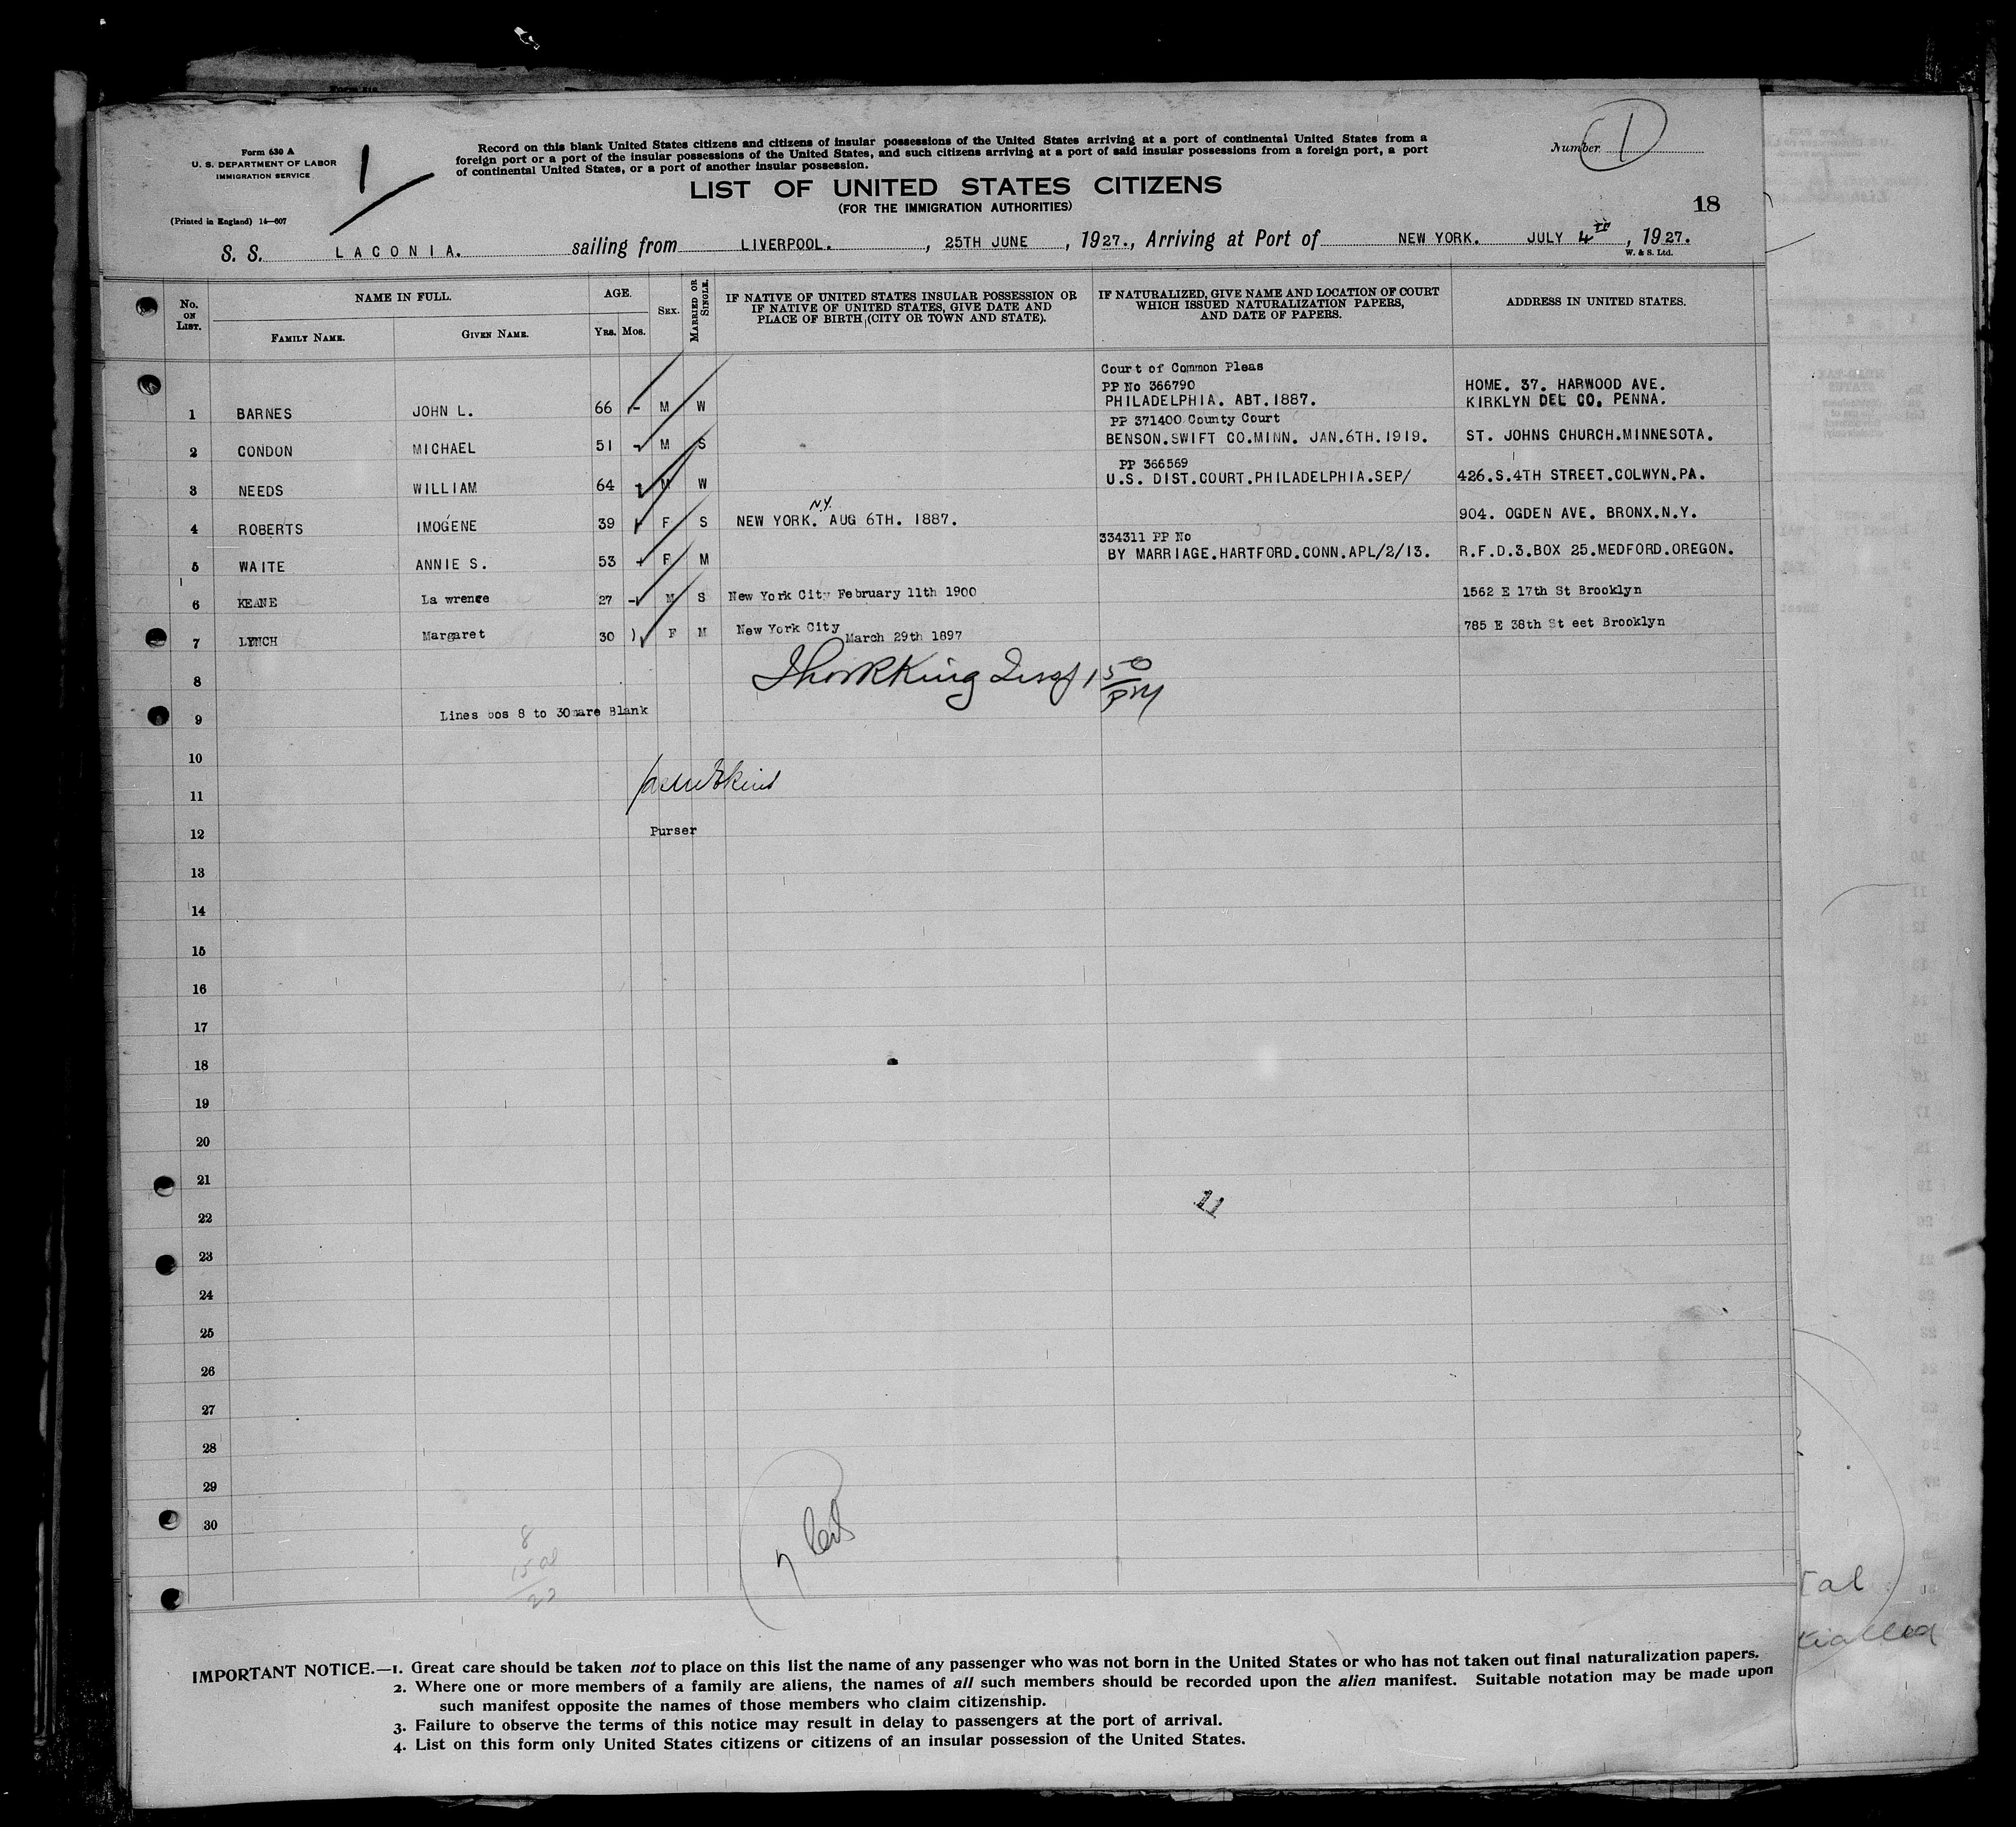 Form 630 A
U. S. DEPARTMENT OF LABOR
IMMIGRATION SERVICE
(Printed in England) 14—607
1
Record on this blank United States citizens and citizens of insular possessions of the United States arriving at a port of continental United States from a
foreign port or a port of the insular possessions of the United States, and such citizens arriving at a port of said insular possessions from a foreign port, a port
of continental United States, or a port of another insular possession.
Number 1
LIST OF UNITED STATES CITIZENS
(FOR THE IMMIGRATION AUTHORITIES)
18
S. S. LACONIA. sailing from LIVERPOOL. , 25TH JUNE , 1927., Arriving at Port of NEW YORK. JULY 4th , 1927.
W. & S. Ltd.
No. ON LIST. NAME IN FULL. AGE. SEX. MARRIED OR SINGLE. IF NATIVE OF UNITED STATES INSULAR POSSESSION OR IF NATIVE OF UNITED STATES, GIVE DATE AND PLACE OF BIRTH (CITY OR TOWN AND STATE). IF NATURALIZED, GIVE NAME AND LOCATION OF COURT WHICH ISSUED NATURALIZATION PAPERS, AND DATE OF PAPERS. ADDRESS IN UNITED STATES.
FAMILY NAME. GIVEN NAME. YRS. MOS.
Court of Common Pleas
PP No 366790 HOME. 37. HARWOOD AVE.
1 BARNES JOHN L. 66 - M W PHILADELPHIA. ABT.1887. KIRKLYN DEL CO. PENNA.
PP 371400 County Court
2 CONDON MICHAEL 51 - M S BENSON.SWIFT CO.MINN. JAN.6TH.1919. ST. JOHNS CHURCH.MINNESOTA.
PP 366569
3 NEEDS WILLIAM 64 - M W U.S. DIST.COURT.PHILADELPHIA.SEP/ 426.S.4TH STREET.COLWYN.PA.
N.Y.
4 ROBERTS IMOGENE 39 F S NEW YORK. AUG 6TH. 1887. 904. OGDEN AVE. BRONX.N.Y.
334311 PP No
5 WAITE ANNIE S. 53 F M BY MARRIAGE.HARTFORD.CONN.APL/2/13. R.F.D.3.BOX 25.MEDFORD.OREGON.
6 KEANE La wrence 27 - M S New York City February 11th 1900 1562 E 17th St Brooklyn
7 LYNCH Margaret 30 F M New York City March 29th 1897 785 E 38th St eet Brooklyn
8 King 1 50 PM
9 Lines 8 to 30 are Blank
10
11
12 Purser
13
14
15
16
17
18
19
20
21
11
22
23
24
25
26
27
28
29
30
8
15
23
7
IMPORTANT NOTICE.—1. Great care should be taken not to place on this list the name of any passenger who was not born in the United States or who has not taken out final naturalization papers.
2. Where one or more members of a family are aliens, the names of all such members should be recorded upon the alien manifest. Suitable notation may be made upon
such manifest opposite the names of those members who claim citizenship.
3. Failure to observe the terms of this notice may result in delay to passengers at the port of arrival.
4. List on this form only United States citizens or citizens of an insular possession of the United States.